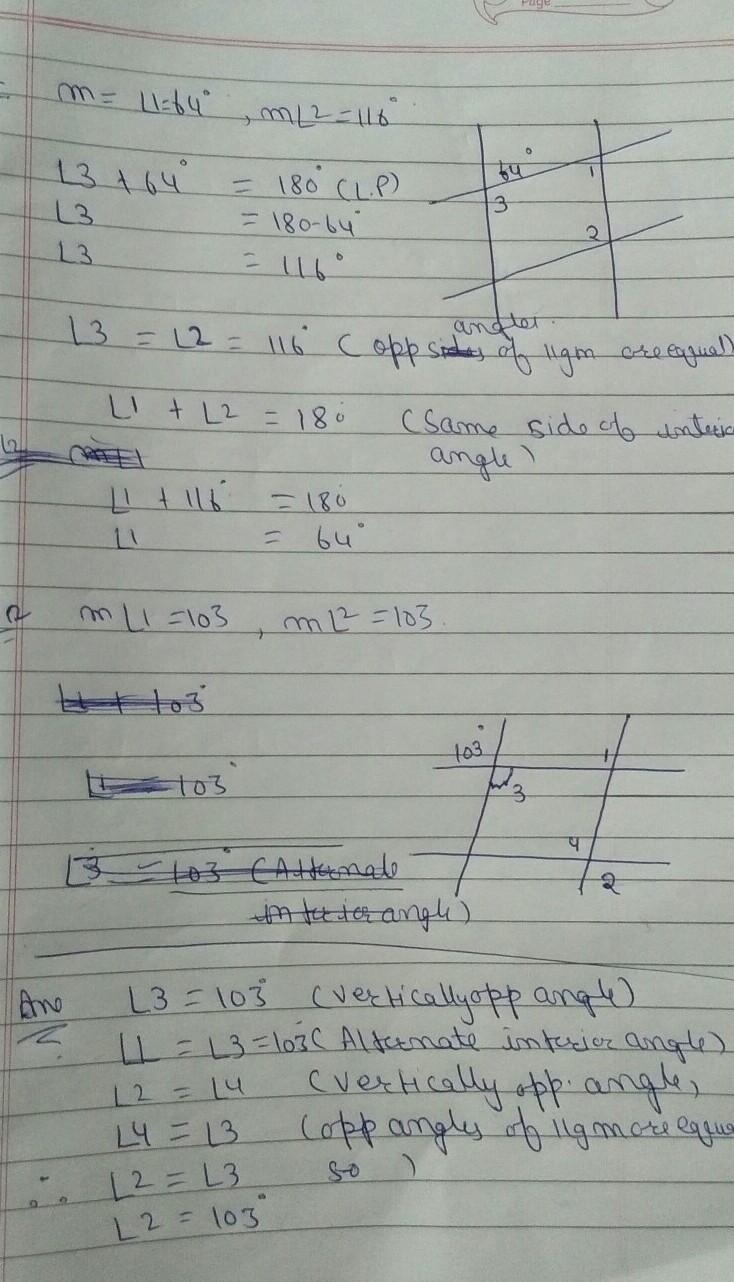 Page
m = ∠1=64° , m∠2=116°
∠3 + 64° = 180° (L.P)
∠3 = 180-64°
∠3 = 116°
64°
1
3
2
angles
∠3 = ∠2 = 116° ( opp sides of ||gm are equal)
∠1 + ∠2 = 180 (Same side of interio
angle)
∠1 + 116° = 180
∠1 = 64°
m∠1 =103 , m∠2 =103.
∠1 + 103°
∠1 = 103°
103°
1
3
4
2
∠3 = 103° (Alternate
interior angle)
Ans ∠3 = 103° (vertically opp angle)
∠1 = ∠3=103( Alternate interior angle)
∠2 = ∠4 (vertically opp. angle,
∠4 = ∠3 (opp angles of ||gm are equa
∴ ∠2 = ∠3 so )
∠2 = 103°